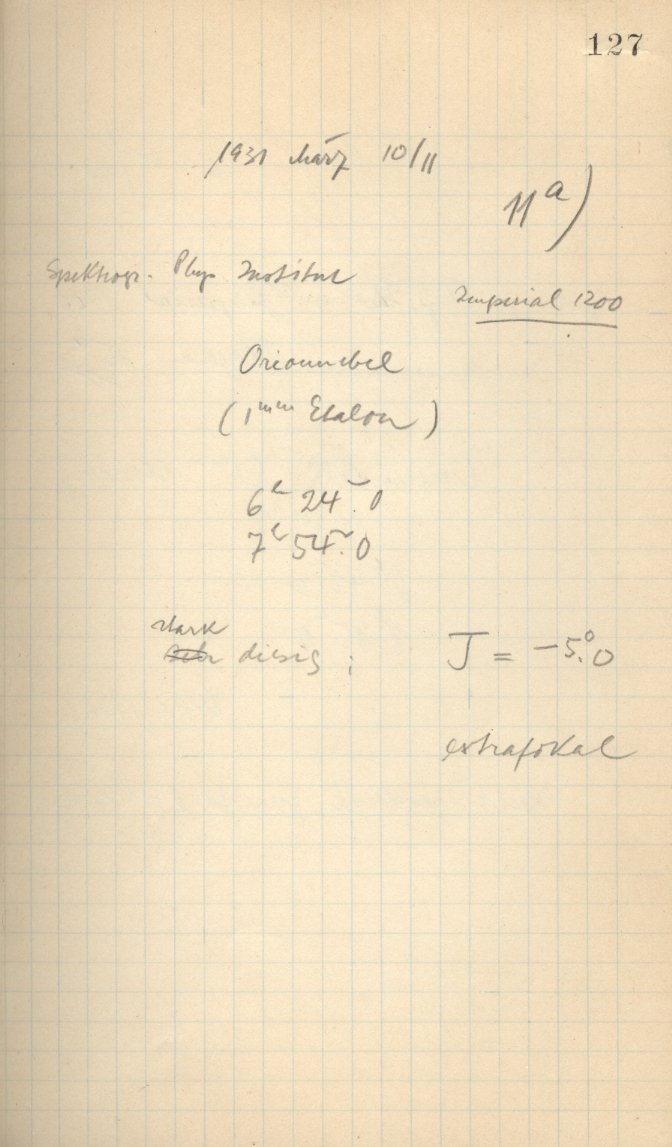 127
1931 März 10/11
11a)
Spektrogr. Phys Institut
Imperial 1200
Orionnebel
(1mm Etalon)
6h 24m.0
7h 54m.0
stark
sehr diesig; J = -5°.0
extrafokal